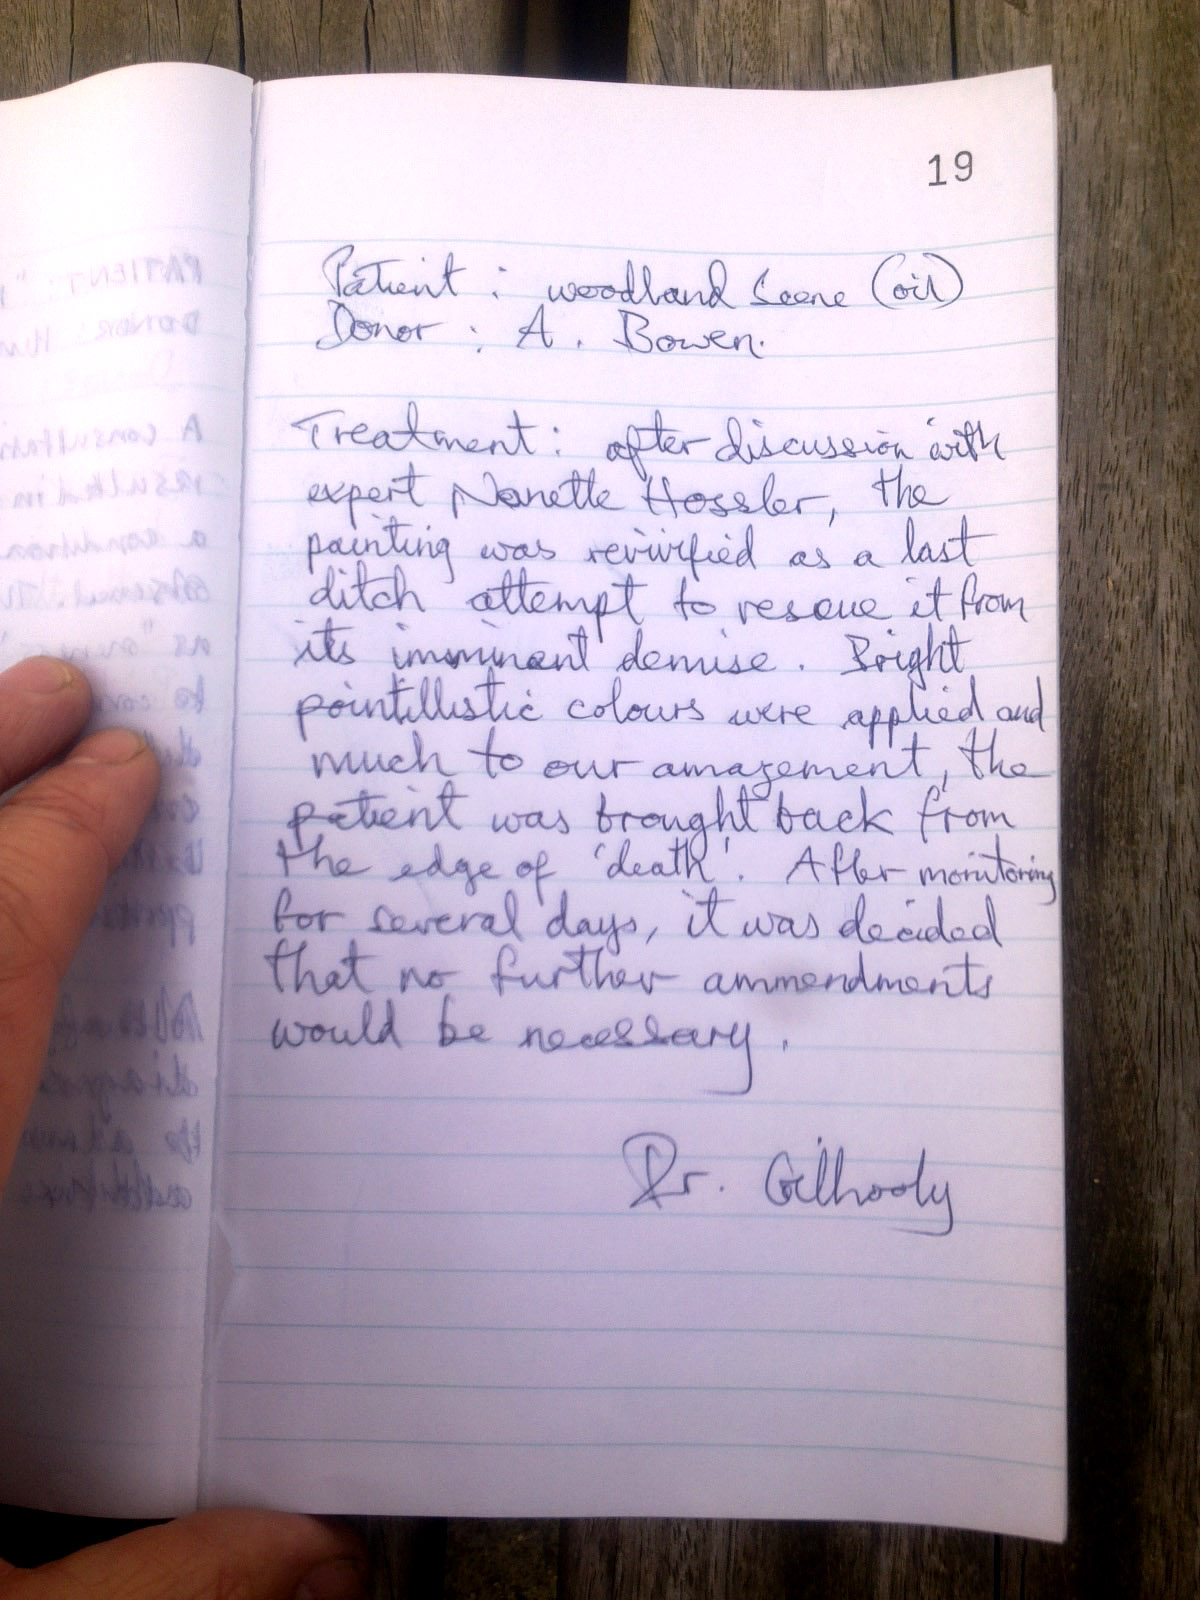 19
Patient : woodland Scene (oil)
Donor : A. Bowen.
Treatment : after discussion with
expert Nanette Hossler, the
painting was revivified as a last
ditch attempt to rescue it from
its imminent demise. Bright
pointillistic colours were applied and
much to our amazement, the
patient was brought back from
the edge of 'death'. After monitoring
for several days, it was decided
that no further ammendments
would be necessary.
Dr. Gilhooly